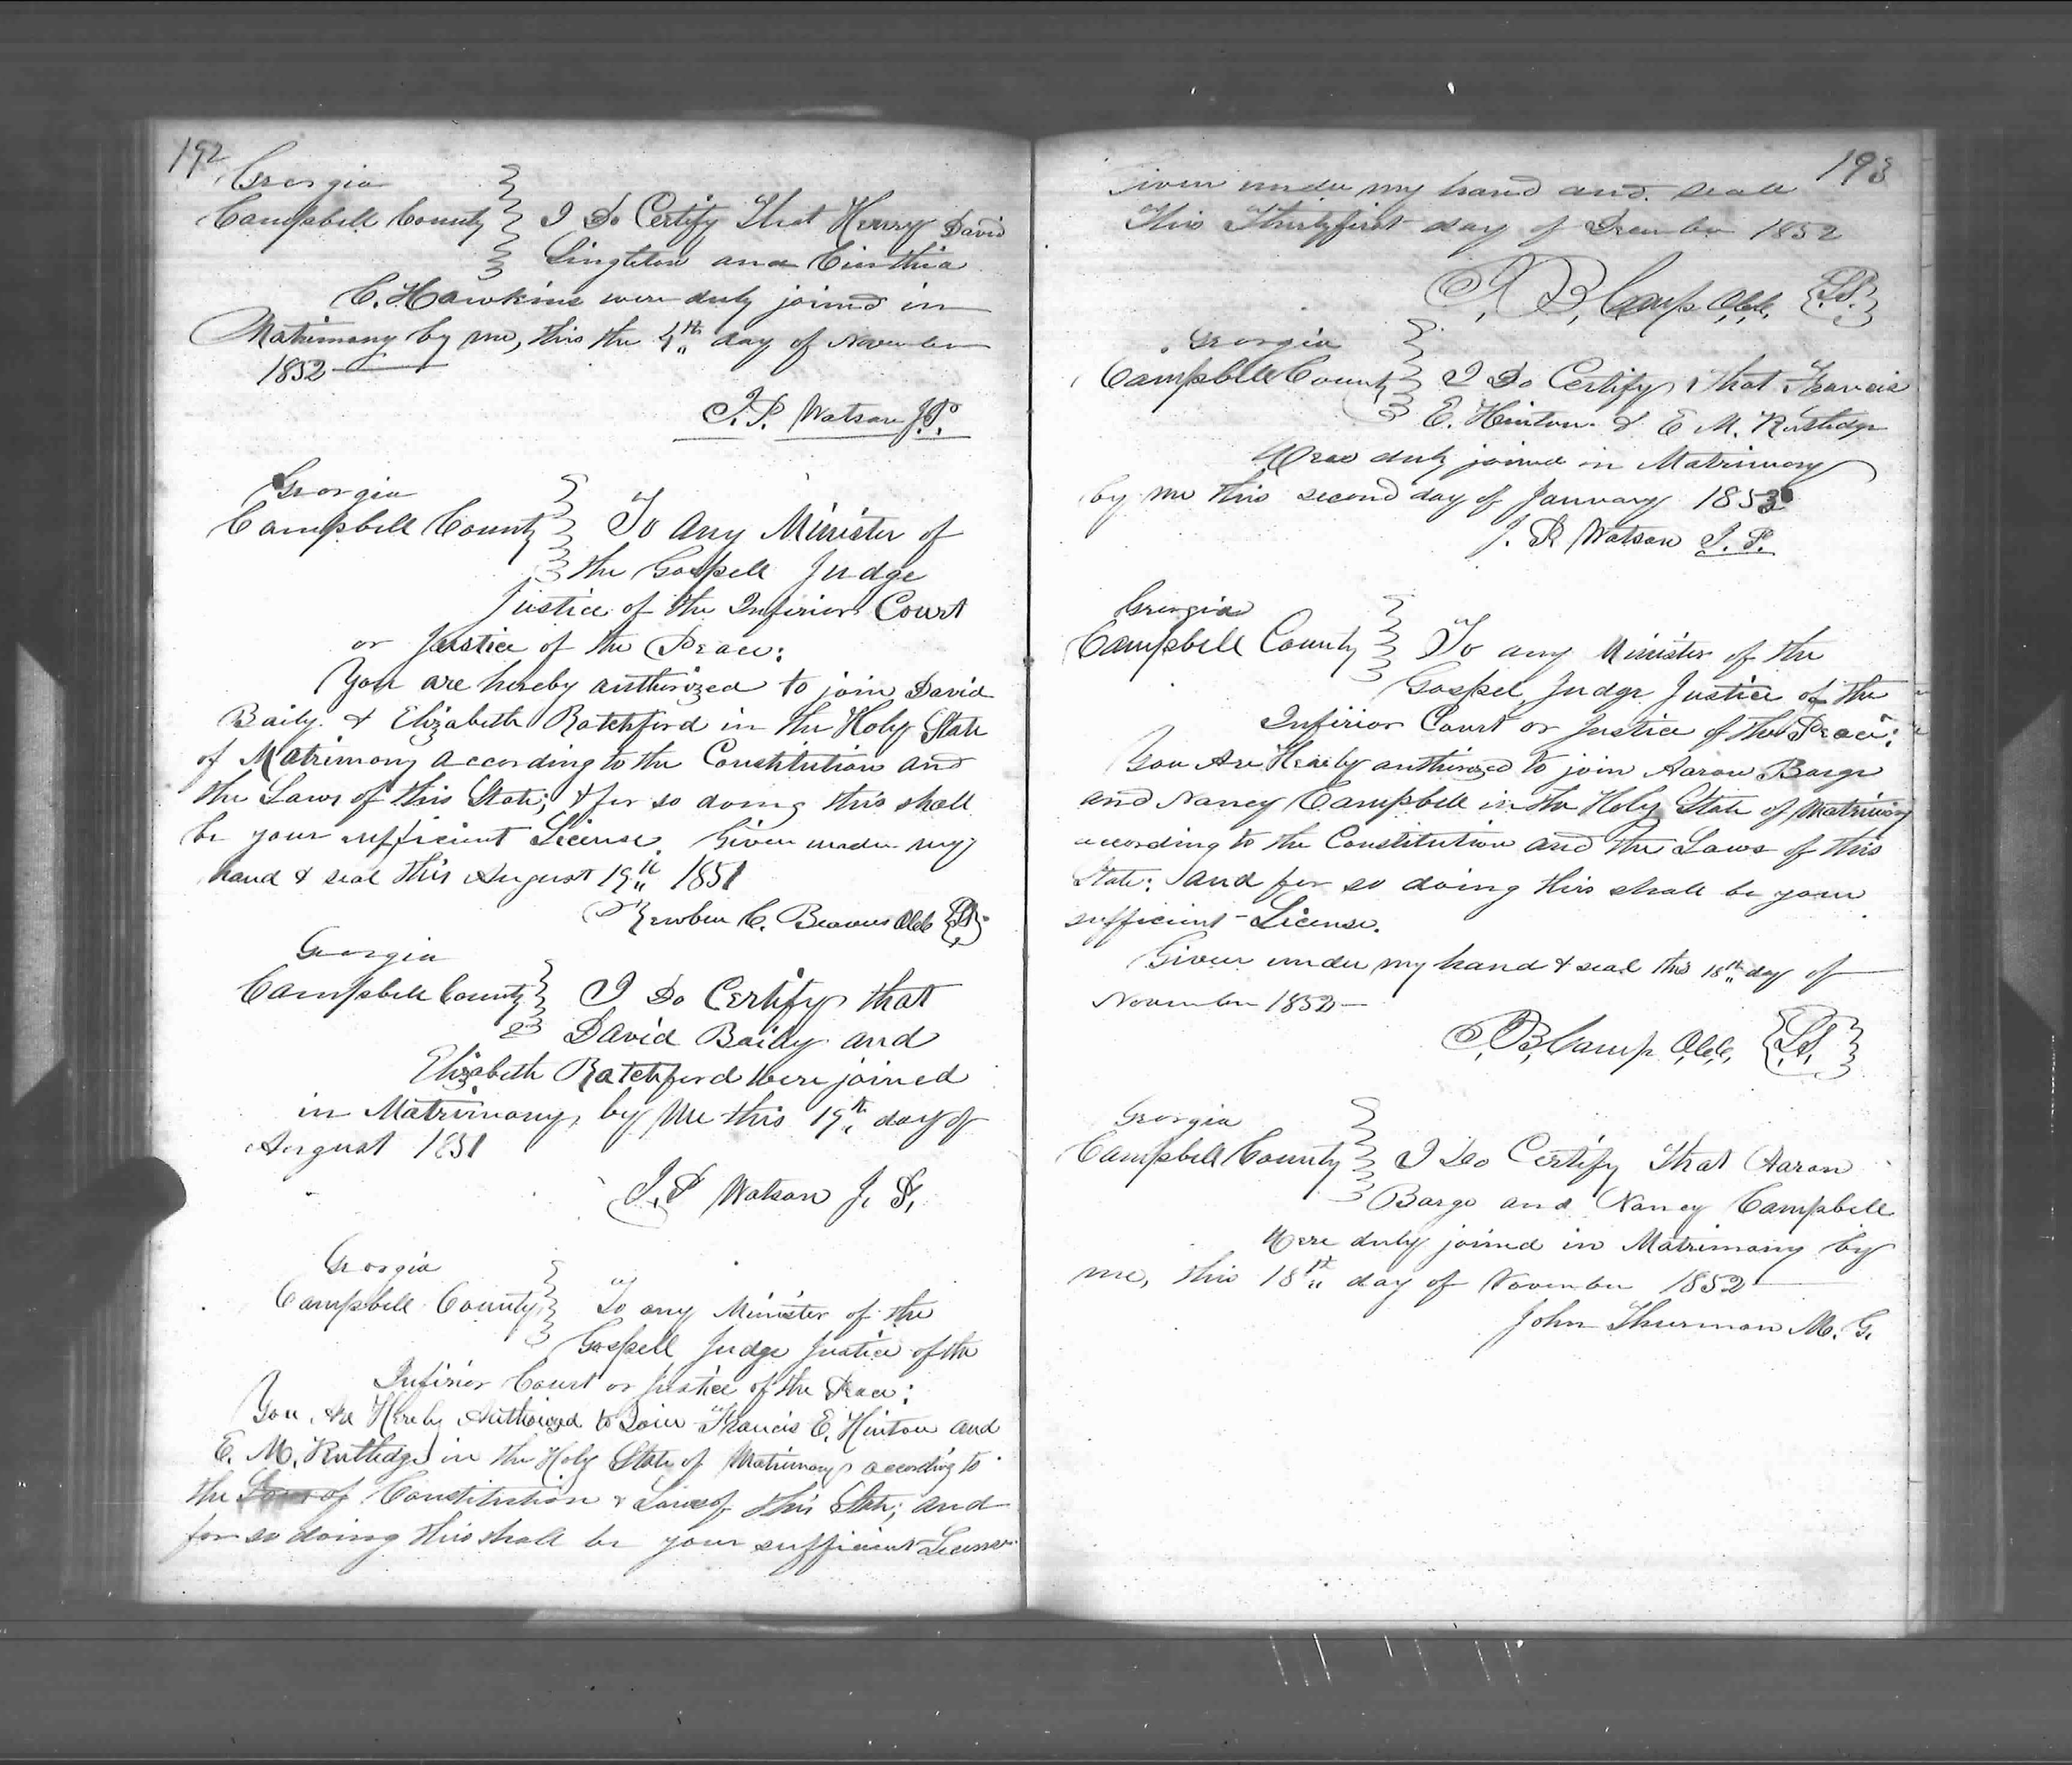 192
Georgia
Campbell County I Do Certify That Henry David
Singleton and Cinthia
C. Hawkins were duly joined in
Matrimony by me, this the 4th day of November
1852
J. P. Watson J.P.
Georgia
Campbell County To any Minister of
the Gospell Judge
Justice of the Inferior Court
or Justice of the Peace:
You are hereby authorized to join David
Baily & Elizabeth Ratchford in the Holy State
of Matrimony according to the Constitution and
the Laws of this State; & for so doing this shall
be your sufficient License. Given under my
hand & seal this August 19th 1851
Rewben C. Beavers Clk L.S.
Georgia
Campbell County I Do Certify that
David Baily and
Elizabeth Ratchford were joined
in Matrimony, by Me this 19th day of
August 1851
J. P Watson J. P.
Georgia
Campbell County To any Minister of the
Gospell Judge Justice of the
Inferior Court or Justice of the Peace:
You Are Hereby Authorized to Join Francis E. Hinton and
E. M. Rutledge in the Holy State of Matrimony according to
the Laws of Constitution & Laws of this State; and
for so doing this shall be your sufficient License
193
Given under my hand and seale
This Thirtyfirst day of December 1852
R. B, Camp C.C.C. L.S.
Georgia
Campbell County I Do Certify, that Francis
E. Hinton & E M. Rutledge
Were duly joined in Matrimony
by me this second day of January 1853
J. P. Watson J. P.
Georgia
Campbell County To any Minister of the
Gospel, Judge Justice of the
Inferior Court or Justice of the Peace:
You Are Hereby authorized to join Aaron Barge
and Nancy Campbell in the Holy State of Matrimony
according to the Constitution and the Laws of this
State: and for so doing this shall be your
sufficient License.
Given under my hand & seal this 18th day of
November 1852
R. B, Camp C.C.C. L.S.
Georgia
Campbell County I Do Certify That Aaron
Barge and Nancy Campbell
Were duly joined in Matrimony by
me, this 18th day of November 1852
John Thurman M. G.